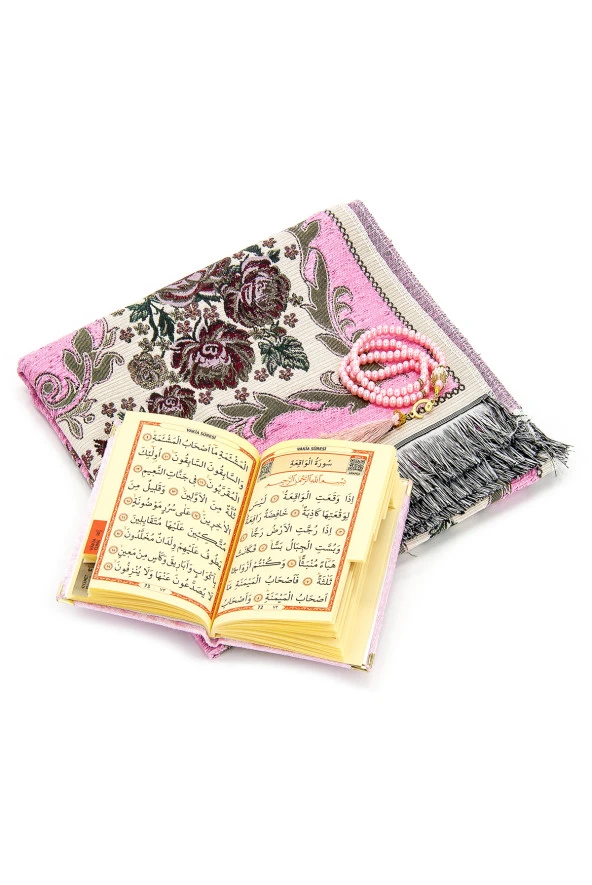 VAKIA SÛRESİ
سُورَةُ الْوَاقِعَةِ
بِسْمِ اللهِ الرَّحْمٰنِ الرَّحِيمِ
اِذَا وَقَعَتِ الْوَاقِعَةُ لَيْسَ
لِوَقْعَتِهَا كَاذِبَةٌ خَافِضَةٌ رَافِعَةٌ
اِذَا رُجَّتِ الْاَرْضُ رَجًّا
وَبُسَّتِ الْجِبَالُ بَسًّا فَكَانَتْ
هَبَاءً مُنْبَثًّا وَكُنْتُمْ اَزْوَاجًا
ثَلٰثَةً فَاَصْحَابُ الْمَيْمَنَةِ مَا
اَصْحَابُ الْمَيْمَنَةِ وَاَصْحَابُ
72 ٧٢
VAKIA SÛRESİ
الْمَشْـَٔمَةِ مَا اَصْحَابُ الْمَشْـَٔمَةِ
وَالسَّابِقُونَ السَّابِقُونَ اُولٰئِكَ
الْمُقَرَّبُونَ فِي جَنَّاتِ النَّعِيمِ
ثُلَّةٌ مِنَ الْاَوَّلِينَ وَقَلِيلٌ مِنَ
الْاٰخِرِينَ عَلٰى سُرُرٍ مَوْضُونَةٍ
مُتَّكِـِٔينَ عَلَيْهَا مُتَقَابِلِينَ
يَطُوفُ عَلَيْهِمْ وِلْدَانٌ مُخَلَّدُونَ
بِاَكْوَابٍ وَاَبَارِيقَ وَكَأْسٍ مِنْ مَعِينٍ
لَا يُصَدَّعُونَ عَنْهَا وَلَا يُنْزِفُونَ
73 ٧٣